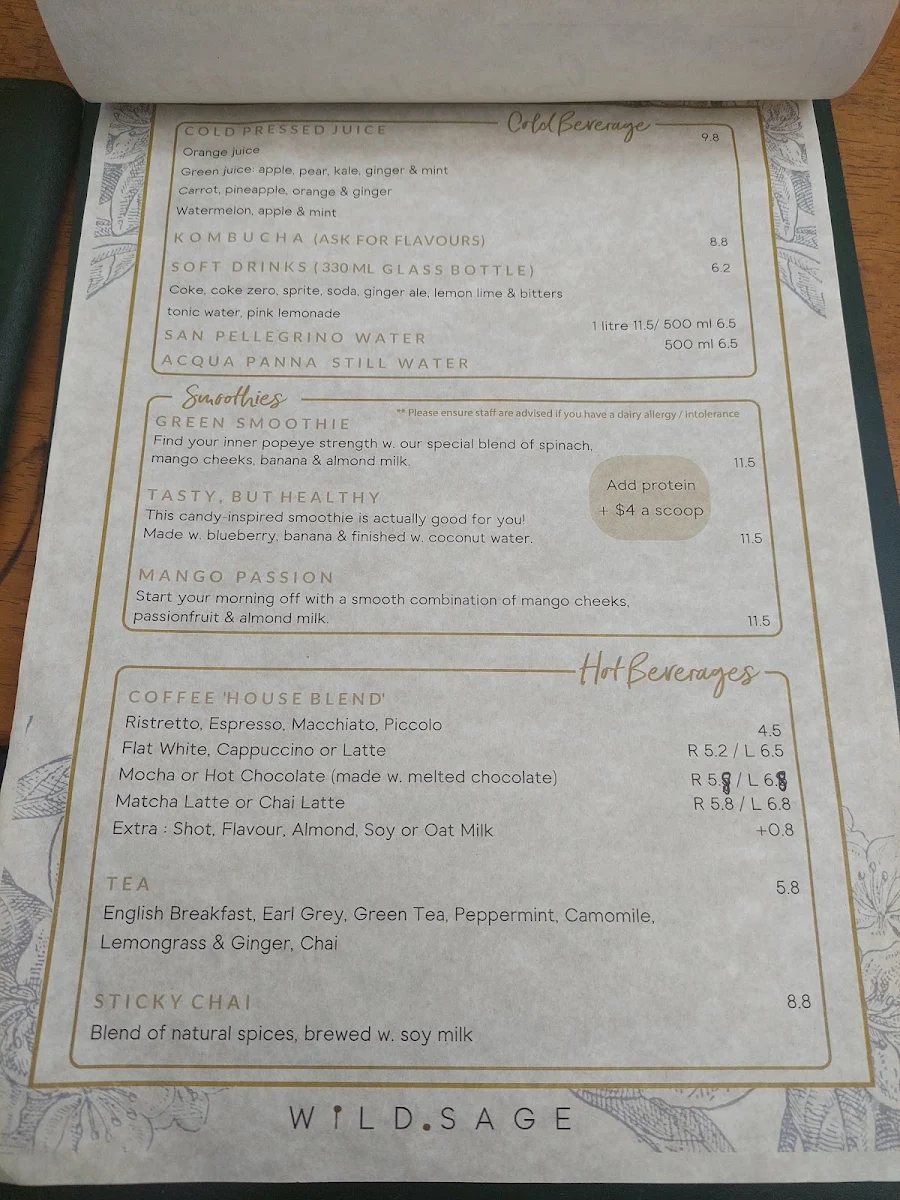 Cold Beverage
COLD PRESSED JUICE 9.8
Orange juice
Green juice: apple, pear, kale, ginger & mint
Carrot, pineapple, orange & ginger
Watermelon, apple & mint
KOMBUCHA (ASK FOR FLAVOURS) 8.8
SOFT DRINKS (330 ML GLASS BOTTLE) 6.2
Coke, coke zero, sprite, soda, ginger ale, lemon lime & bitters
tonic water, pink lemonade
SAN PELLEGRINO WATER 1 litre 11.5/ 500 ml 6.5
ACQUA PANNA STILL WATER 500 ml 6.5
Smoothies
** Please ensure staff are advised if you have a dairy allergy / intolerance
GREEN SMOOTHIE
Find your inner popeye strength w. our special blend of spinach,
mango cheeks, banana & almond milk. 11.5
Add protein
+ $4 a scoop
TASTY, BUT HEALTHY
This candy-inspired smoothie is actually good for you!
Made w. blueberry, banana & finished w. coconut water. 11.5
MANGO PASSION
Start your morning off with a smooth combination of mango cheeks,
passionfruit & almond milk. 11.5
Hot Beverages
COFFEE 'HOUSE BLEND'
Ristretto, Espresso, Macchiato, Piccolo 4.5
Flat White, Cappuccino or Latte R 5.2 / L 6.5
Mocha or Hot Chocolate (made w. melted chocolate) R 5.8 / L 6.8
Matcha Latte or Chai Latte R 5.8 / L 6.8
Extra : Shot, Flavour, Almond, Soy or Oat Milk +0.8
TEA 5.8
English Breakfast, Earl Grey, Green Tea, Peppermint, Camomile,
Lemongrass & Ginger, Chai
STICKY CHAI 8.8
Blend of natural spices, brewed w. soy milk
WILD.SAGE